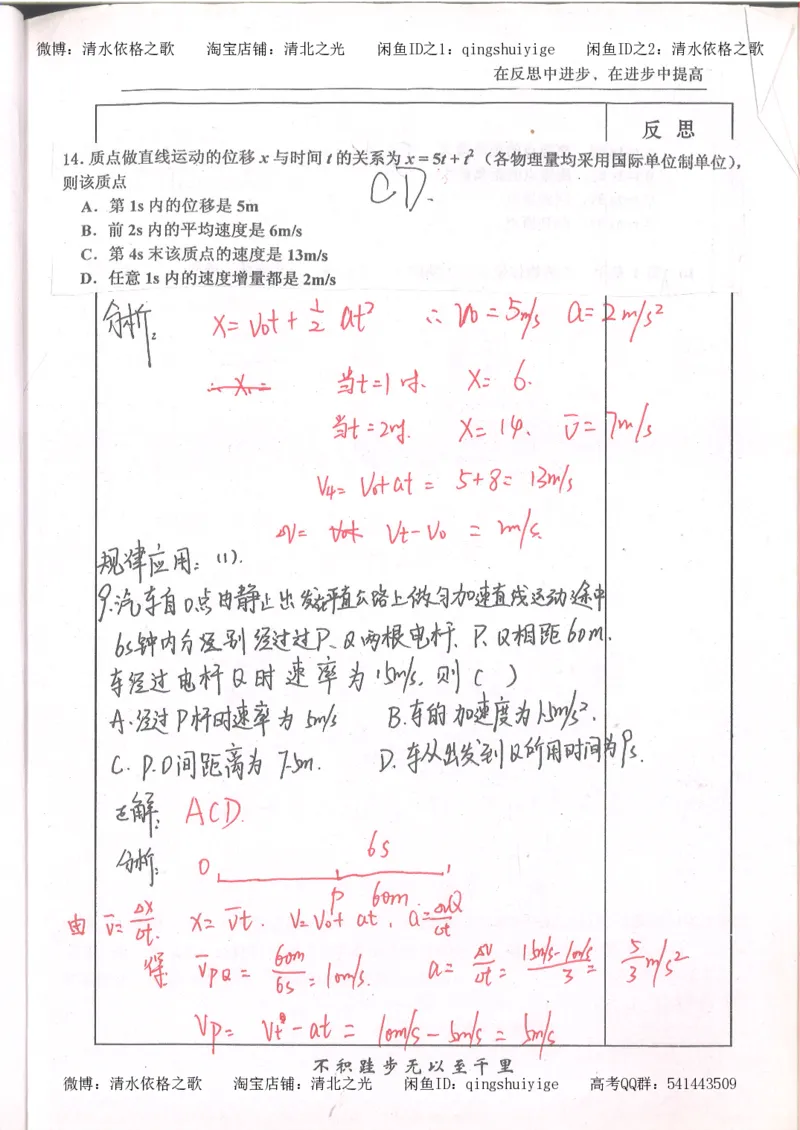 微博：清水依格之歌 淘宝店铺：清北之光 闲鱼ID之1：qingshuiyige 闲鱼ID之2：清水依格之歌
在反思中进步，在进步中提高
反 思
14. 质点做直线运动的位移 x 与时间 t 的关系为 x = 5t + t²（各物理量均采用国际单位制单位），
则该质点
CD.
A．第 1s 内的位移是 5m
B．前 2s 内的平均速度是 6m/s
C．第 4s 末该质点的速度是 13m/s
D．任意 1s 内的速度增量都是 2m/s
分析：
X = V₀t + ½ at² ∴ V₀ = 5m/s a = 2m/s²
当t=1时. X= 6.
当t=2时. X= 14. v̄ = 7m/s
V₄= V₀+at = 5+8= 13m/s
ΔV= Vt-V₀ = 2m/s.
规律应用：(1).
9.汽车自O点由静止出发在平直公路上做匀加速直线运动途中
6s钟内分别经过过P、Q两根电杆. P、Q相距60m.
车经过电杆Q时速率为15m/s. 则（ ）
A.经过P杆时速率为5m/s B.车的加速度为1.5m/s².
C. P.O间距离为7.5m. D.车从出发到Q所用时间为9s.
正解：ACD.
6s
分析： O
P 60m Q
由 v̄= Δx/Δt. X= v̄t. V=V₀+at. a= Δv/Δt
得 v̄PQ = 60m/6s = 10m/s. a= Δv/Δt = 15m/s-10m/s/3 = 5/3 m/s²
VP= Vt-at = 10m/s-5m/s = 5m/s
不积跬步无以至千里
微博：清水依格之歌 淘宝店铺：清北之光 闲鱼ID：qingshuiyige 高考QQ群：541443509